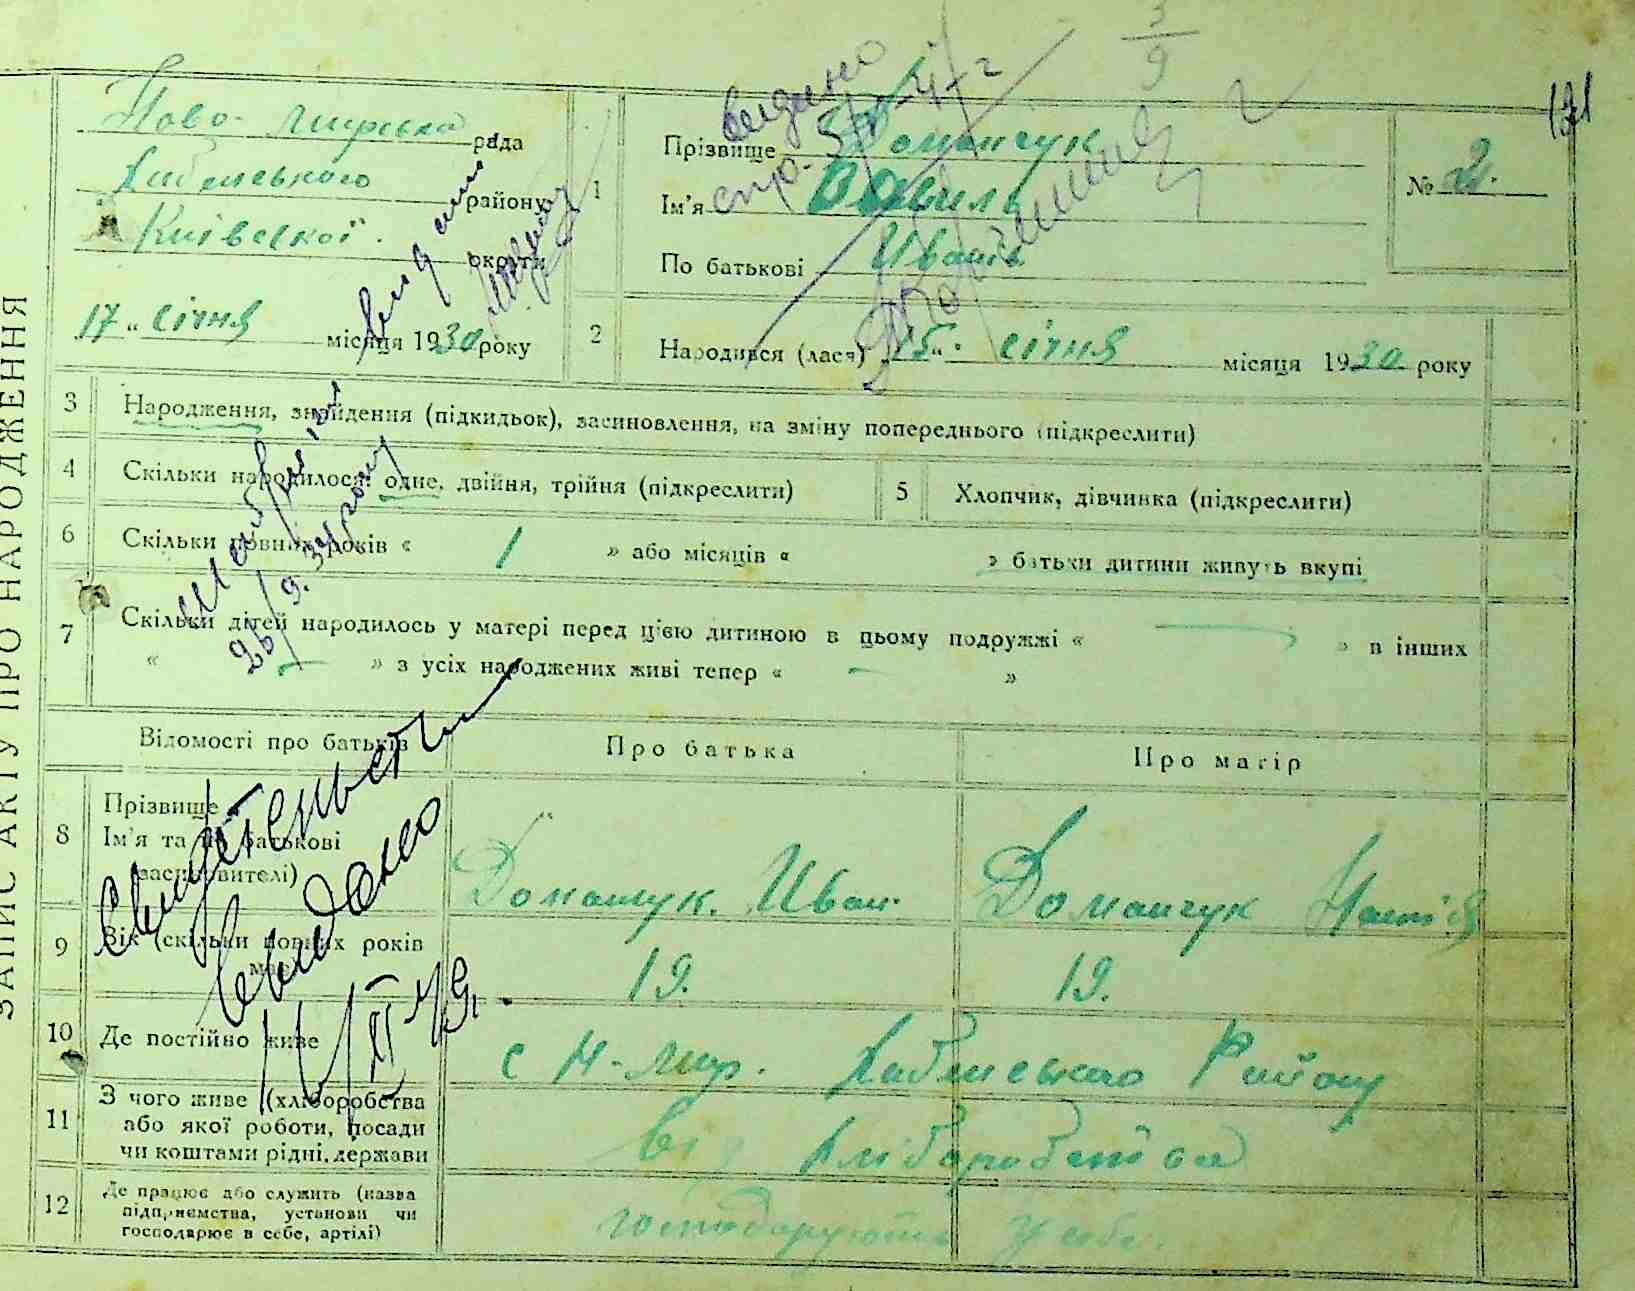 3/9
131
ЗАПИС АКТУ ПРО НАРОДЖЕННЯ
Ново-мирська рада
Хабенського району
Київської округи
17 " січня місяця 1930 року
1
Прізвище Доманчук
Ім'я
По батькові Иван
№ 2.
видано
2
Народився (лася) 15 " січня місяця 1930 року
3 Народження, знайдення (підкидьок), засиновлення, на зміну попереднього (підкреслити)
4 Скільки народилося: одне, двійня, трійня (підкреслити)
5 Хлопчик, дівчинка (підкреслити)
6 Скільки повних років « 1 » або місяців « » батьки дитини живуть вкупі
26/9. 34 году
7 Скільки дітей народилось у матері перед цією дитиною в цьому подружжі « — » в інших
« — » з усіх народжених живі тепер « — »
Відомості про батьків
Про батька
Про матір
8 Прізвище
Ім'я та по батькові
(засиновителі)
Доманчук. Иван.
Доманчук
9 Вік (скільки повних років має)
19.
19.
Свидетельство
видано
10 Де постійно живе
с Н-мир. Хабенського Району
11 З чого живе (хліборобства
або якої роботи, посади
чи коштами рідні, держави
від хліборобства
12 Де працює або служить (назва
підприємства, установи чи
господарює в себе, артілі)
господарують у себе.